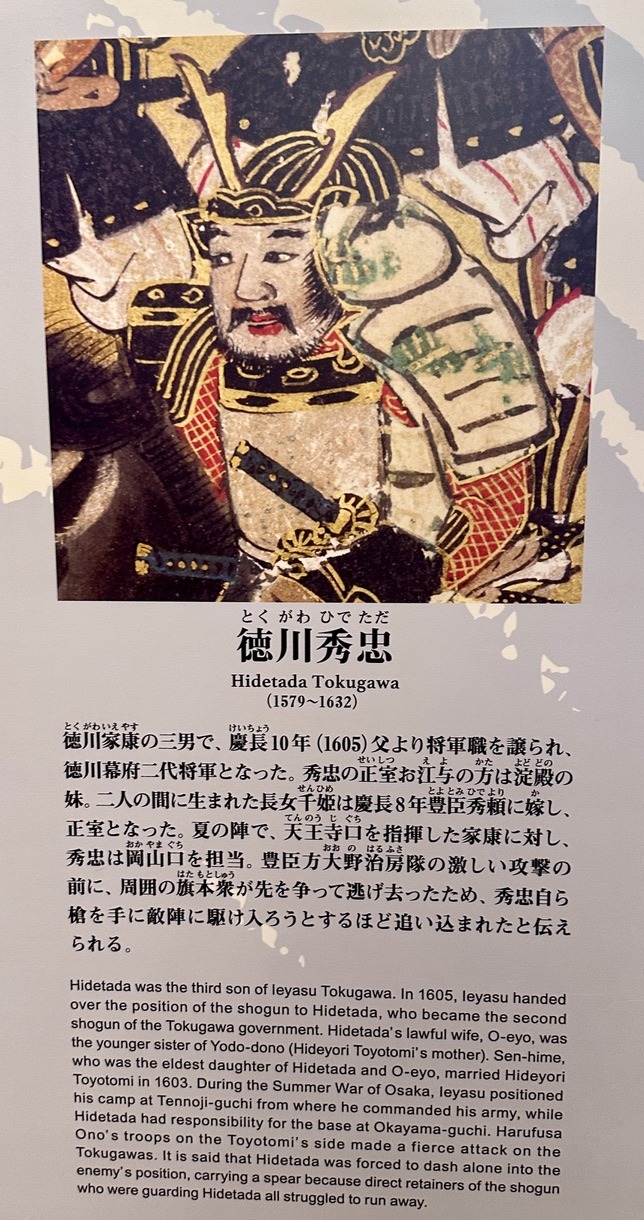 とくがわひでただ
徳川秀忠
Hidetada Tokugawa
（1579〜1632）
とくがわいえやす けいちょう
徳川家康の三男で、慶長10年（1605）父より将軍職を譲られ、
せいしつ えよ かた よどどの
徳川幕府二代将軍となった。秀忠の正室お江与の方は淀殿の
せんひめ とよとみひでより か
妹。二人の間に生まれた長女千姫は慶長8年豊臣秀頼に嫁し、
てんのうじぐち
正室となった。夏の陣で、天王寺口を指揮した家康に対し、
おかやまぐち おおの はるふさ
秀忠は岡山口を担当。豊臣方大野治房隊の激しい攻撃の
はたもとしゅう
前に、周囲の旗本衆が先を争って逃げ去ったため、秀忠自ら
槍を手に敵陣に駆け入ろうとするほど追い込まれたと伝え
られる。
Hidetada was the third son of Ieyasu Tokugawa. In 1605, Ieyasu handed
over the position of the shogun to Hidetada, who became the second
shogun of the Tokugawa government. Hidetada's lawful wife, O-eyo, was
the younger sister of Yodo-dono (Hideyori Toyotomi's mother). Sen-hime,
who was the eldest daughter of Hidetada and O-eyo, married Hideyori
Toyotomi in 1603. During the Summer War of Osaka, Ieyasu positioned
his camp at Tennoji-guchi from where he commanded his army, while
Hidetada had responsibility for the base at Okayama-guchi. Harufusa
Ono's troops on the Toyotomi's side made a fierce attack on the
Tokugawas. It is said that Hidetada was forced to dash alone into the
enemy's position, carrying a spear because direct retainers of the shogun
who were guarding Hidetada all struggled to run away.